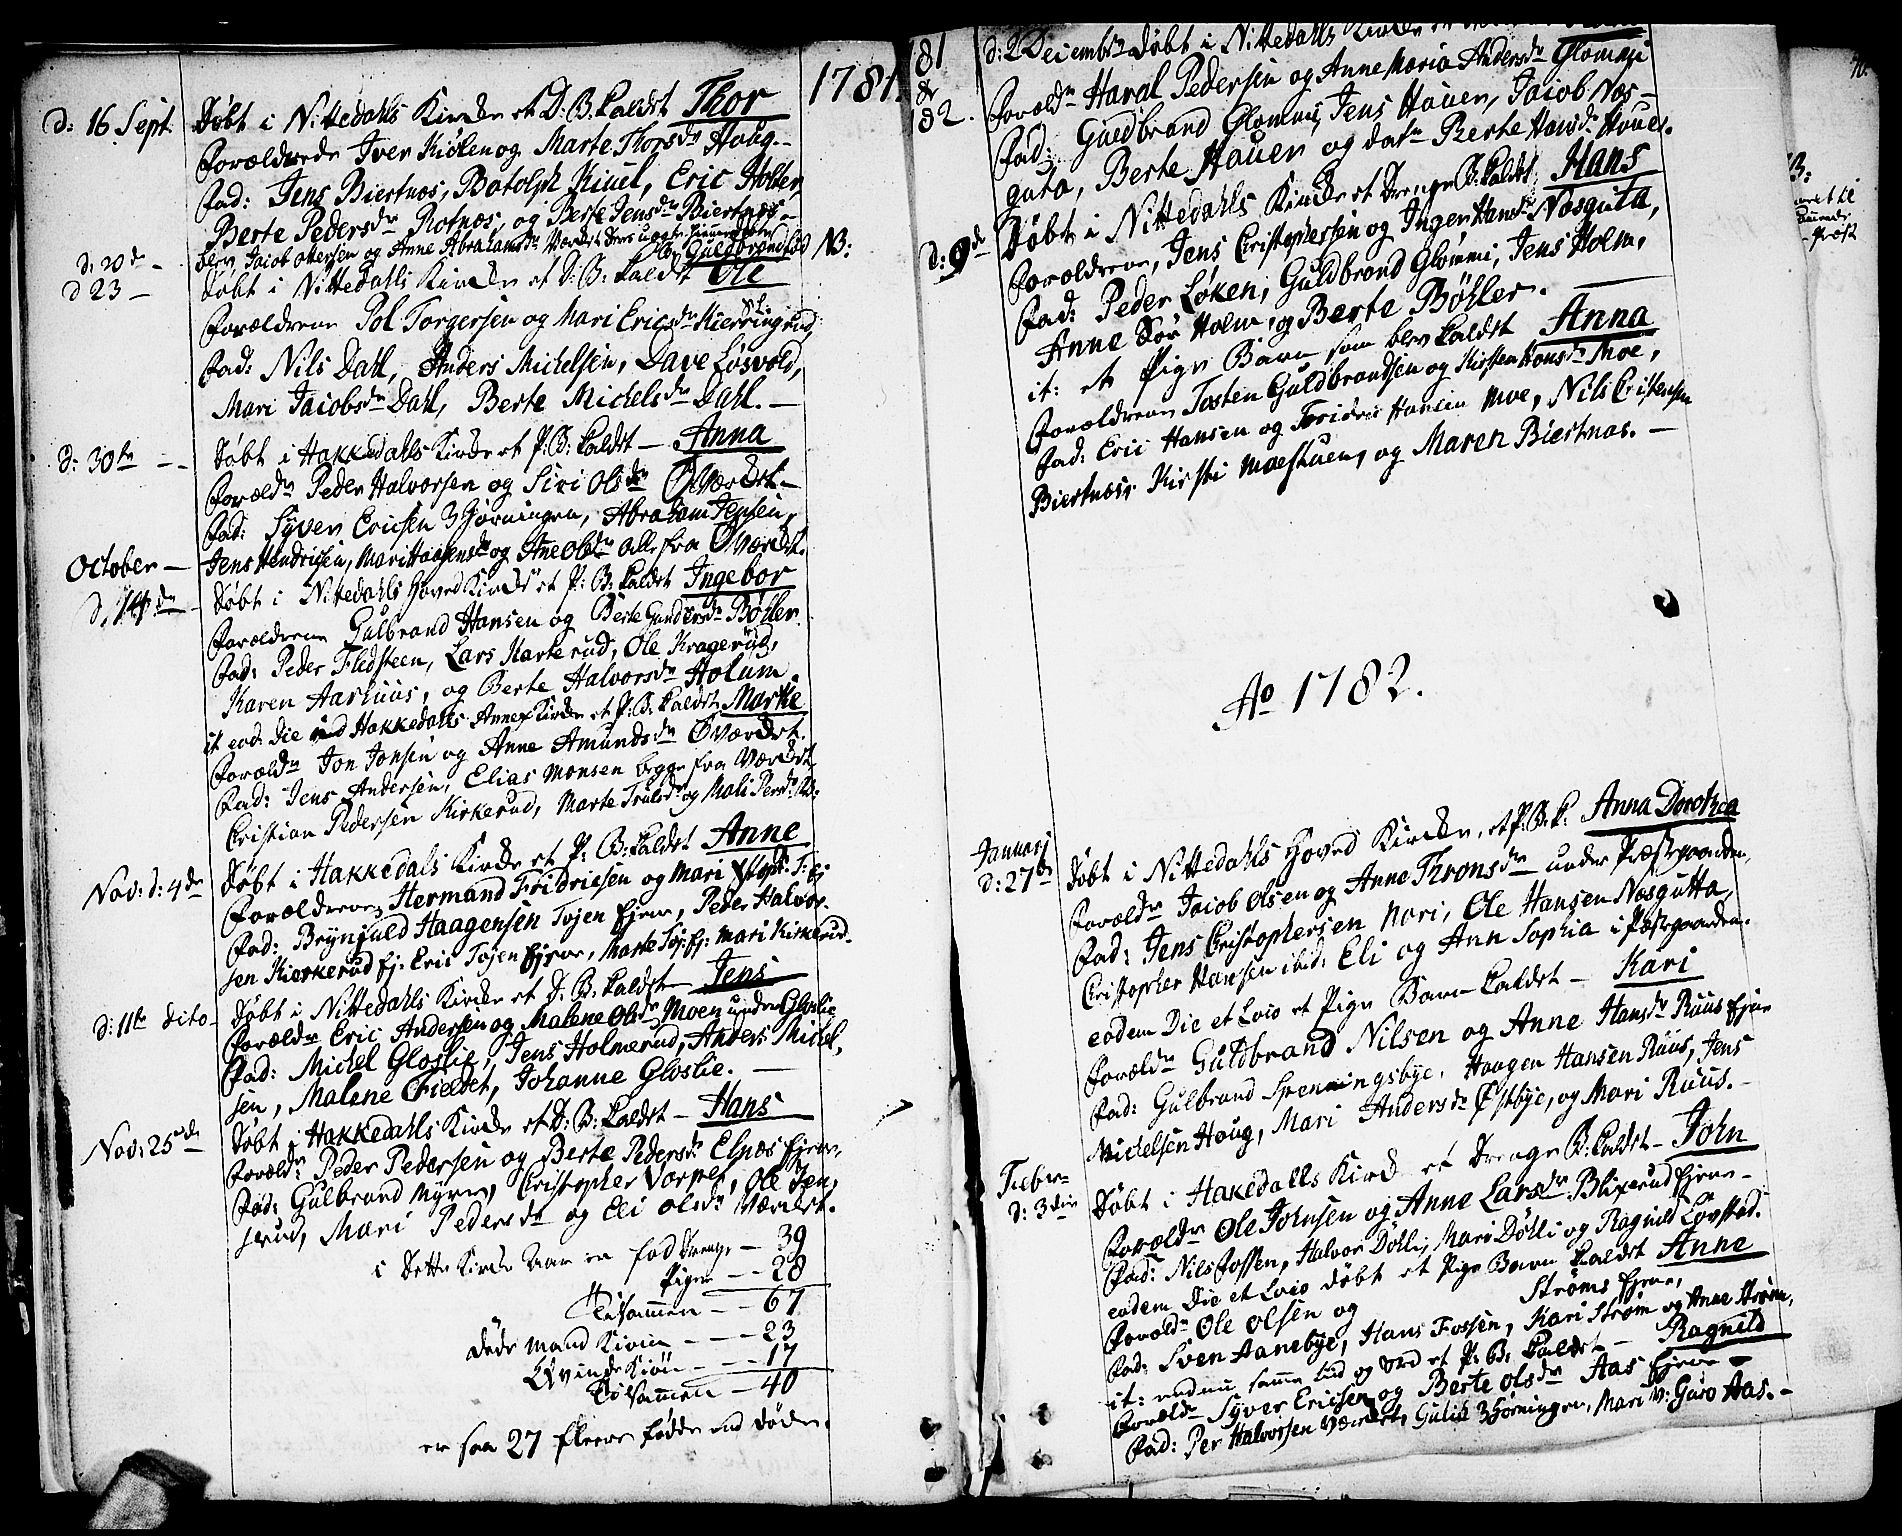 1781.
d: 16 Sept. Døbt i Nittedahls Kirke et D: B. kaldet Thor
Forældrene Iver Kiølen og Marte Thorsdr Haug.
Fad: Jens Biertnæs, Botolph Kiuel, Eric Holter,
Berte Pedersdr Rotnæs, og Berte Jensdr Biertnæs.
d: 20de blev Jacob Ottersen og Anne Abrahamsdr Værdet deres
Guldbrandsød NB:
d 23 Døbt i Nittedahls Kirke et D: B. kaldet Ole
Forældrene Pol Torgersen og Mari Ericsdr Kierringrud,
Fad: Nils Dahl, Anders Michelsen, Dave Løsvold,
Mari Jacobsdr Dahl, Berte Michelsdr Dahl.
d: 30te Døbt i Hakkedahls Kirke et P: B. kaldet Anna
Forældr Peder Halvorsen og Siri Olsdr Værdet
Fad: Syver Ericsen Giørningen, Abraham Jensen,
Jens Hendrichsen, Mari Haagensdr og Ane Olsdr alle fra Værdet.
October
d. 14de Døbt i Nittedahls Hoved Kirke et P: B. kaldet Ingebor
Forældrene Gulbrand Hansen og Berte Gundersdr Bøhler
Fad: Peder Fledsteen, Lars Karterud, Ole Kragerud,
Karen Aarhuus, og Berte Halvorsdr Holum
it eod: Die ved Hakkedahls Annex Kirke et P: B. kaldet Marthe
Forældr Jon Jonsen og Anne Amundsdr Værdet.
Fad: Jens Andersen, Elias Monsen begge fra Værdet
Cristian Pedersen Kirkerud, Marte Trulsdr og Mali Persdr
Nov: d: 4de Døbt i Hakkedals Kirke et P: B: kaldet Anne
Forældrene Hermand Fridricsen og Mari
Fad: Brynjuld Haagensen Tøjen Ejere, Peder Halvor-
sen Kiørkerud Ej: Eric Tøjen Ejere, Marte Tøj: Ej: Mari Kirkerud.
d: 11te dito Døbt i Nittedahls Kirke et D. B. kaldet Jens
Forældr Eric Andersen og Malene Olsdr Moen under Gloslie
Fad: Michel Gloslie, Jens Holmerud, Anders Michel-
sen, Malene Criedet, Johanne Gloslie.
Nov: 25de Døbt i Hakkedahls Kirke et D: B: kaldet Hans
Forældr Peder Pedersen og Berte Pedersdr Elnæs Ejere,
Fad: Gulbrand Myren, Cristopher Vorpes, Ole Jen-
serud, Mari Pedersdr og Eli Olsdr Værdet.
i dette Kirke Aar er fød Drenge 39
Piger 28
Tilsammen 67
døde Mand Kiøn 23
Qvinde Kiøn 17
Tilsammen 40
er saa 27 fleere fødde end døde.
81
&
82.
d: 2 Decembr Døbt i Nittedahls Kirke et
Forældr Haral Pedersen og Anne Maria Andersdr Glommi
Fad: Guldbrand Glommi, Jens Hauer, Jacob Nos-
guta, Berte Hauer og datr Berte Hansdr Hauer.
d: 9de Døbt i Nittedahls Kirke et Drenge B. kaldet Hans
Forældrene, Jens Christophersen og Inger Hansdr Nosguta,
Fad: Peder Løken, Guldbrand Glommi, Jens Holm,
Anne Sør Holm, og Berte Bøhler.
it: et Pige Barn som blev kaldet Anna
Forældrene Tosten Guldbrandsen og Kirsten Hansdr Moe,
Fad: Eric Hansen og Fridric Hansen Moe, Nils Cristensen
Biertnæs Kirsti Moestuen, og Maren Biertnæs.
Ao 1782.
Januarj
d: 27de Døbt i Nittedahls Hoved Kirke, et P: B. k. Anna Dorothea
Forældr Jacob Olsen og Anne Thronsdr under Præstegaarden,
Fad: Jens Christophersen Nori, Ole Hansen Nosgutta,
Christopher Hansen ibid: Eli og Ann Sophia i Præstegaarden.
eodem Die et Loco et Pige Barn kaldet Kari
Forældr Guldbrand Nilsen og Anne Hansdr Ruus Ejere
Fad: Gulbrand Spenningsbye, Haagen Hansen Ruus, Jens
Michelsen Haug, Mari Andersdr Østbye, og Mari Ruus.
Febr
d: 3die Døbt i Hakedahls Kirke et Drenge B. kaldet John
Forældr Ole Johnsen og Anne Larsdr Blixerud Ejere
Fad: Nils Fossen, Halvor Døhli, Mari Døhli og Ragnild Løvstad.
eodem Die et Loco døbt et Pige Barn kaldet Anne
Forældr Ole Olsen og Strøms Ejere,
Fad: Sven Aanebye, Hans Fossen, Kari Strøm og Anne Strøm,
it: endnu samme tid og sted et P: B. kaldet Ragnild
Forældr Syver Ericsen og Berte Olsdr Aas Ejere
Fad: Per Halvorsen Værdet, Gulich Giørningen, Mari V: Guro Aas.